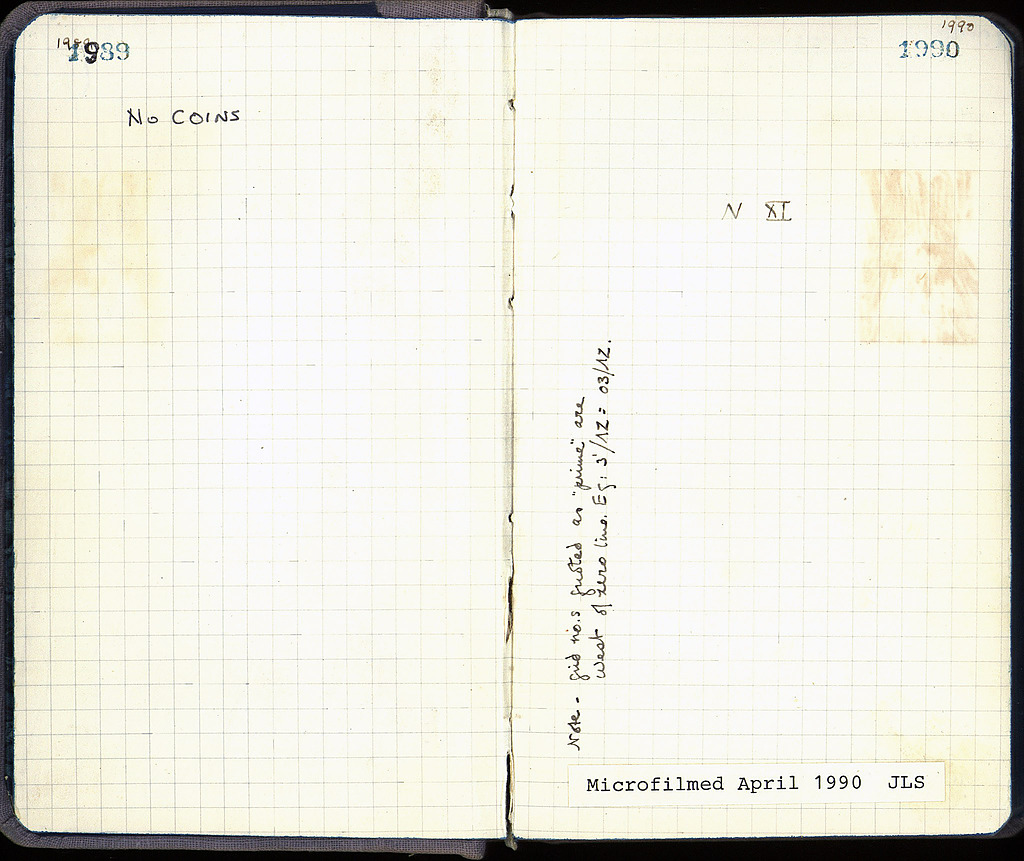 1989
1989
No COINS
1990
1990
N XI
Note - grid no.s quoted as "prime" are
west of zero line. Eg: 3'/12 = 03/12.
Microfilmed April 1990 JLS